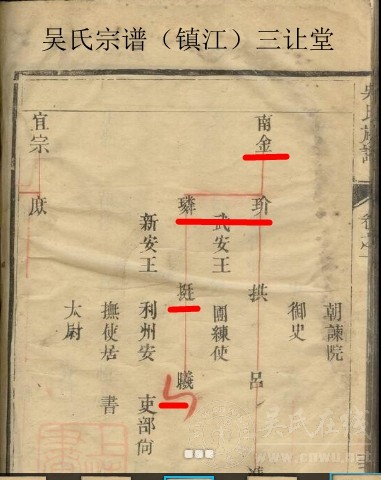 吴氏宗谱（镇江）三让堂
吳氏族譜
朝諫院
御史
南金
玠
拱
呂
武安王
團練使
璘
挺
曦
新安王
利州安
吏部尙
撫使居
書
大尉
宜宗
庶
吴氏在线